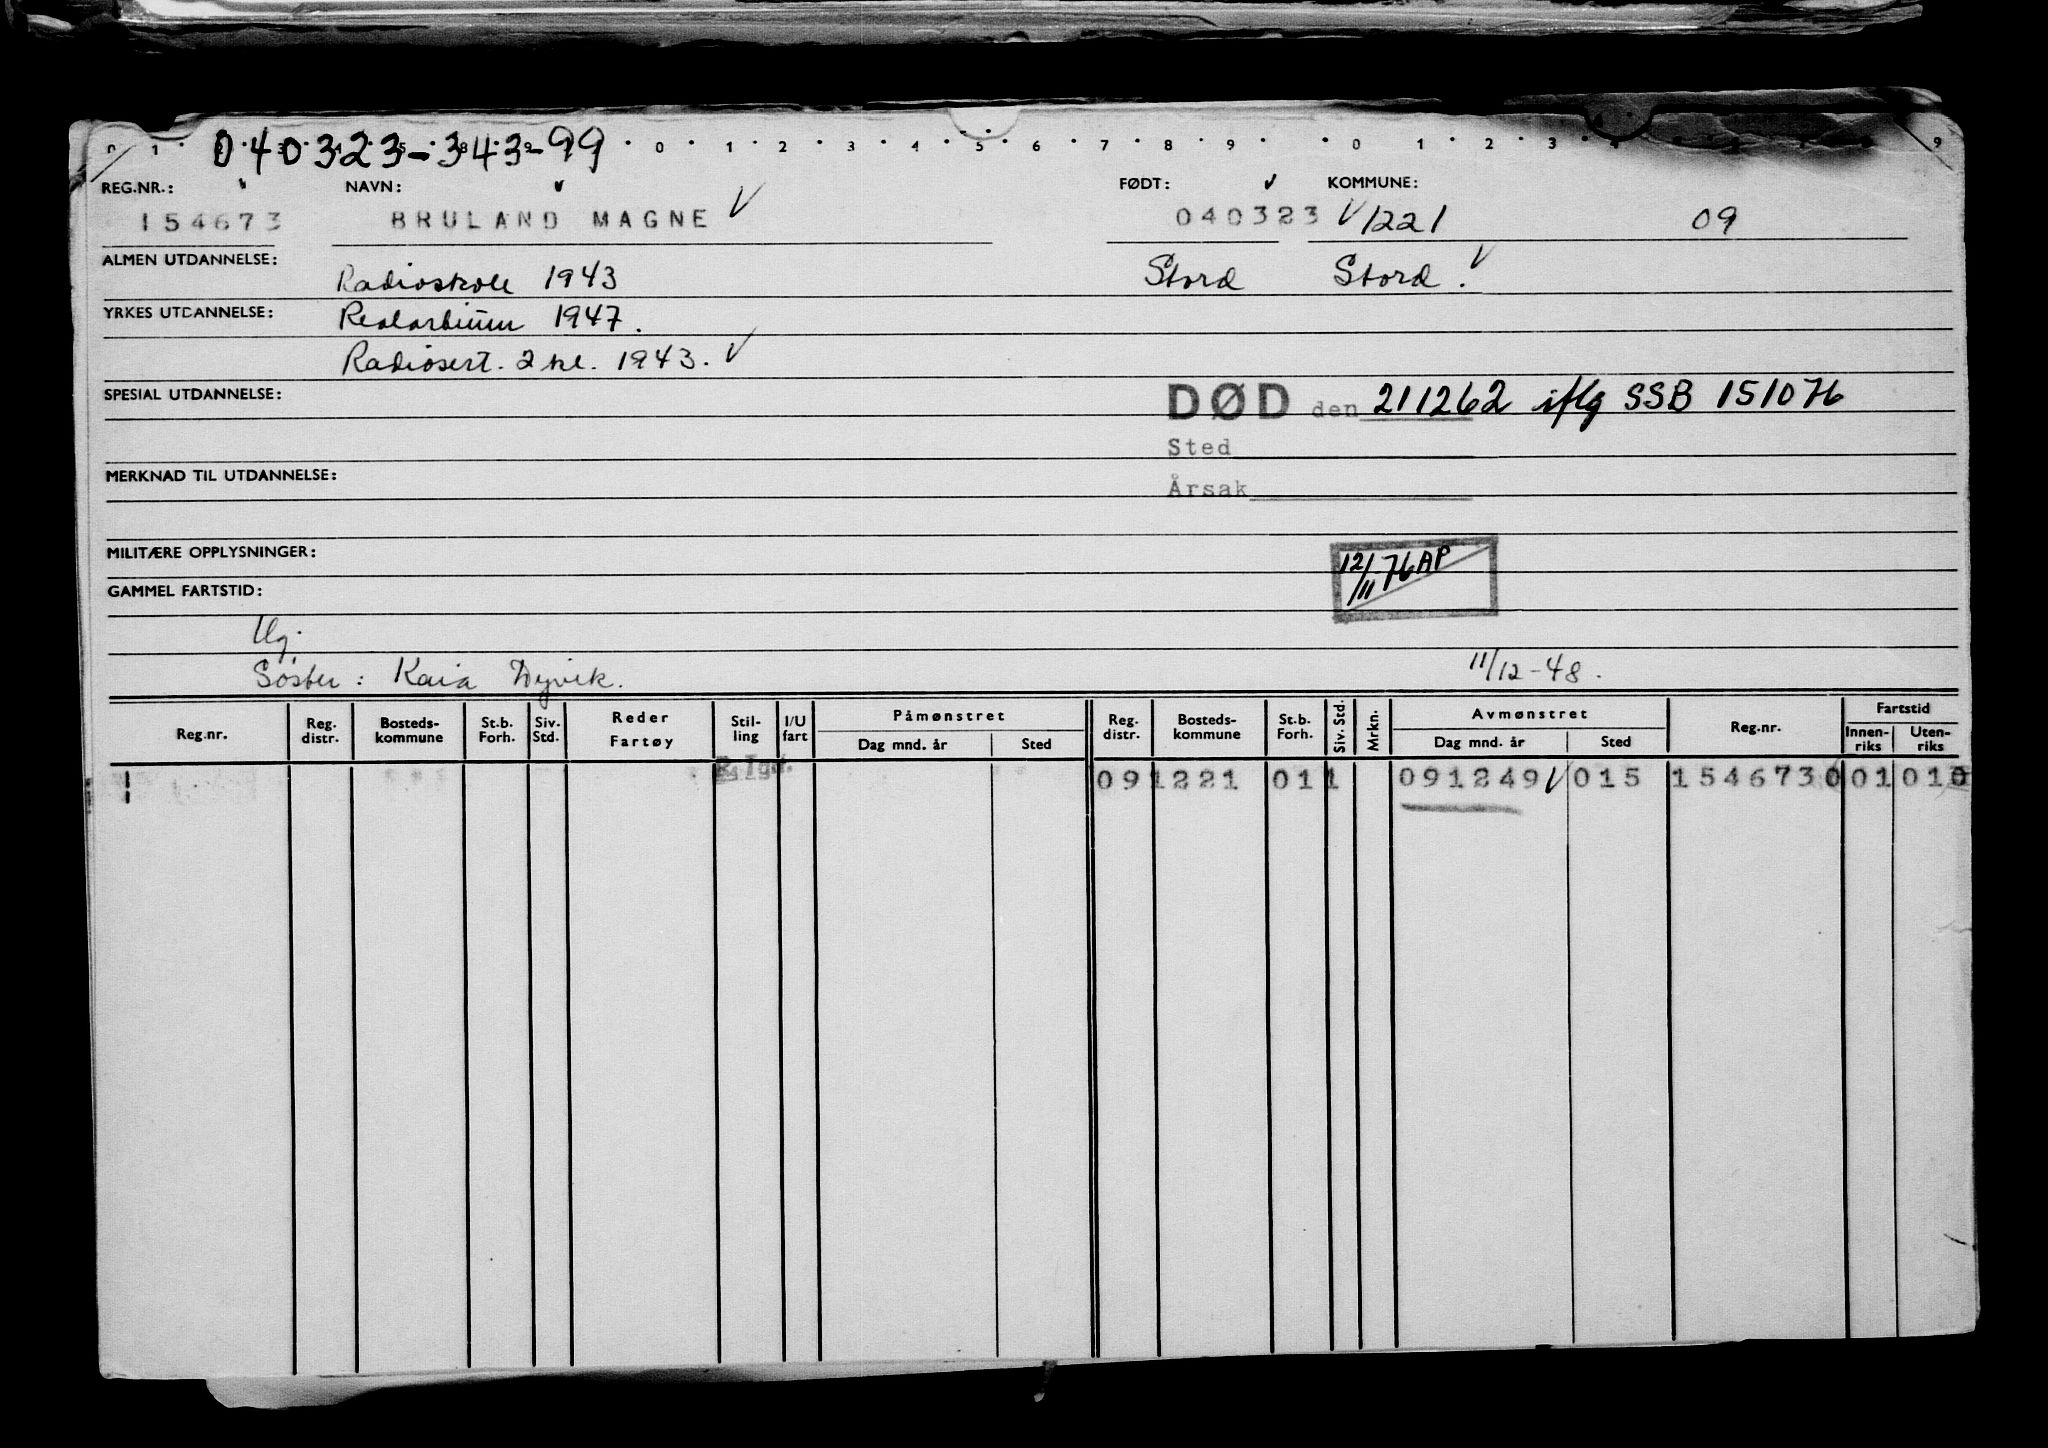 040323-343-99
0 1 0 1 2 3 4 5 6 7 8 9 0 1 2 3 9
REG.NR.: NAVN: FØDT: KOMMUNE:
154673 BRULAND MAGNE 040323 1221 09
ALMEN UTDANNELSE: Radioskole 1943 Stord Stord.
YRKES UTDANNELSE: Realartium 1947.
Radiosert. 2 kl. 1943.
SPESIAL UTDANNELSE: DØD den 211262 iflg SSB 151076
Sted
MERKNAD TIL UTDANNELSE: Årsak
MILITÆRE OPPLYSNINGER: 12/11 76 AP
GAMMEL FARTSTID:
Ug.
Søster: Kaia Dyvik. 11/12-48.
Reg.nr. Reg. distr. Bosteds-kommune St.b. Forh. Siv. Std. Reder Fartøy Stil-ling I/U fart Påmønstret Dag mnd. år Sted Reg. distr. Bosteds-kommune St.b. Forh. Siv. Std. Mrkn. Avmønstret Dag mnd. år Sted Reg.nr. Fartstid Innen-riks Uten-riks
09 1221 01 1 091249 015 154673 001 010